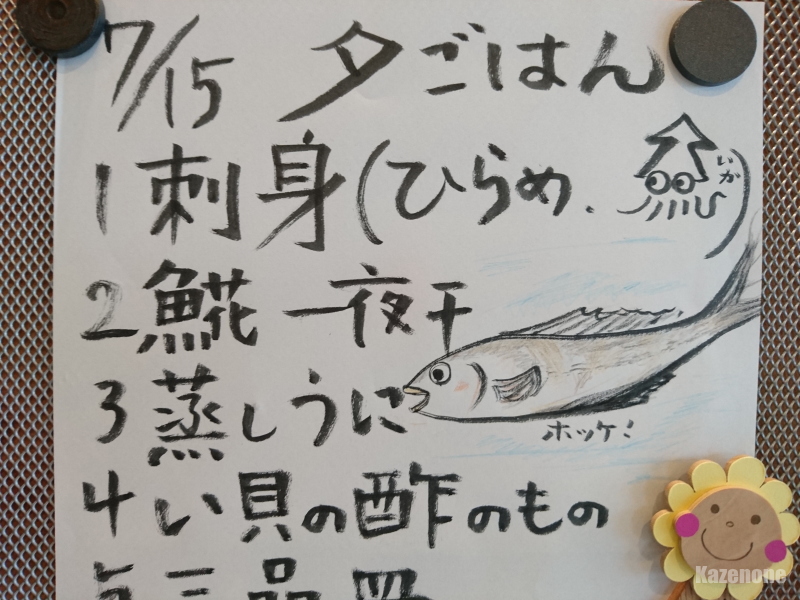 7/15 夕ごはん
1 刺身(ひらめ、いか)
2 𩸽 一夜干
ホッケ!
3 蒸しうに
4 い貝の酢のもの
Kazenone